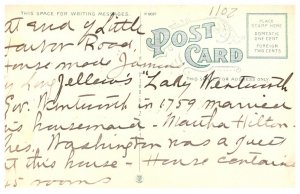 THIS SPACE FOR WRITING MESSAGES
1102
POST CARD
PLACE STAMP HERE
DOMESTIC ONE CENT
FOREIGN TWO CENTS
at end of Little
Harbor Road,
House made famous
by Long
fellow's "Lady Wentworth
Gov. Wentworth in 1759 married
his housemaid - Martha Hilton.
Pres. Washington was a guest
at this house - House contains
45 rooms